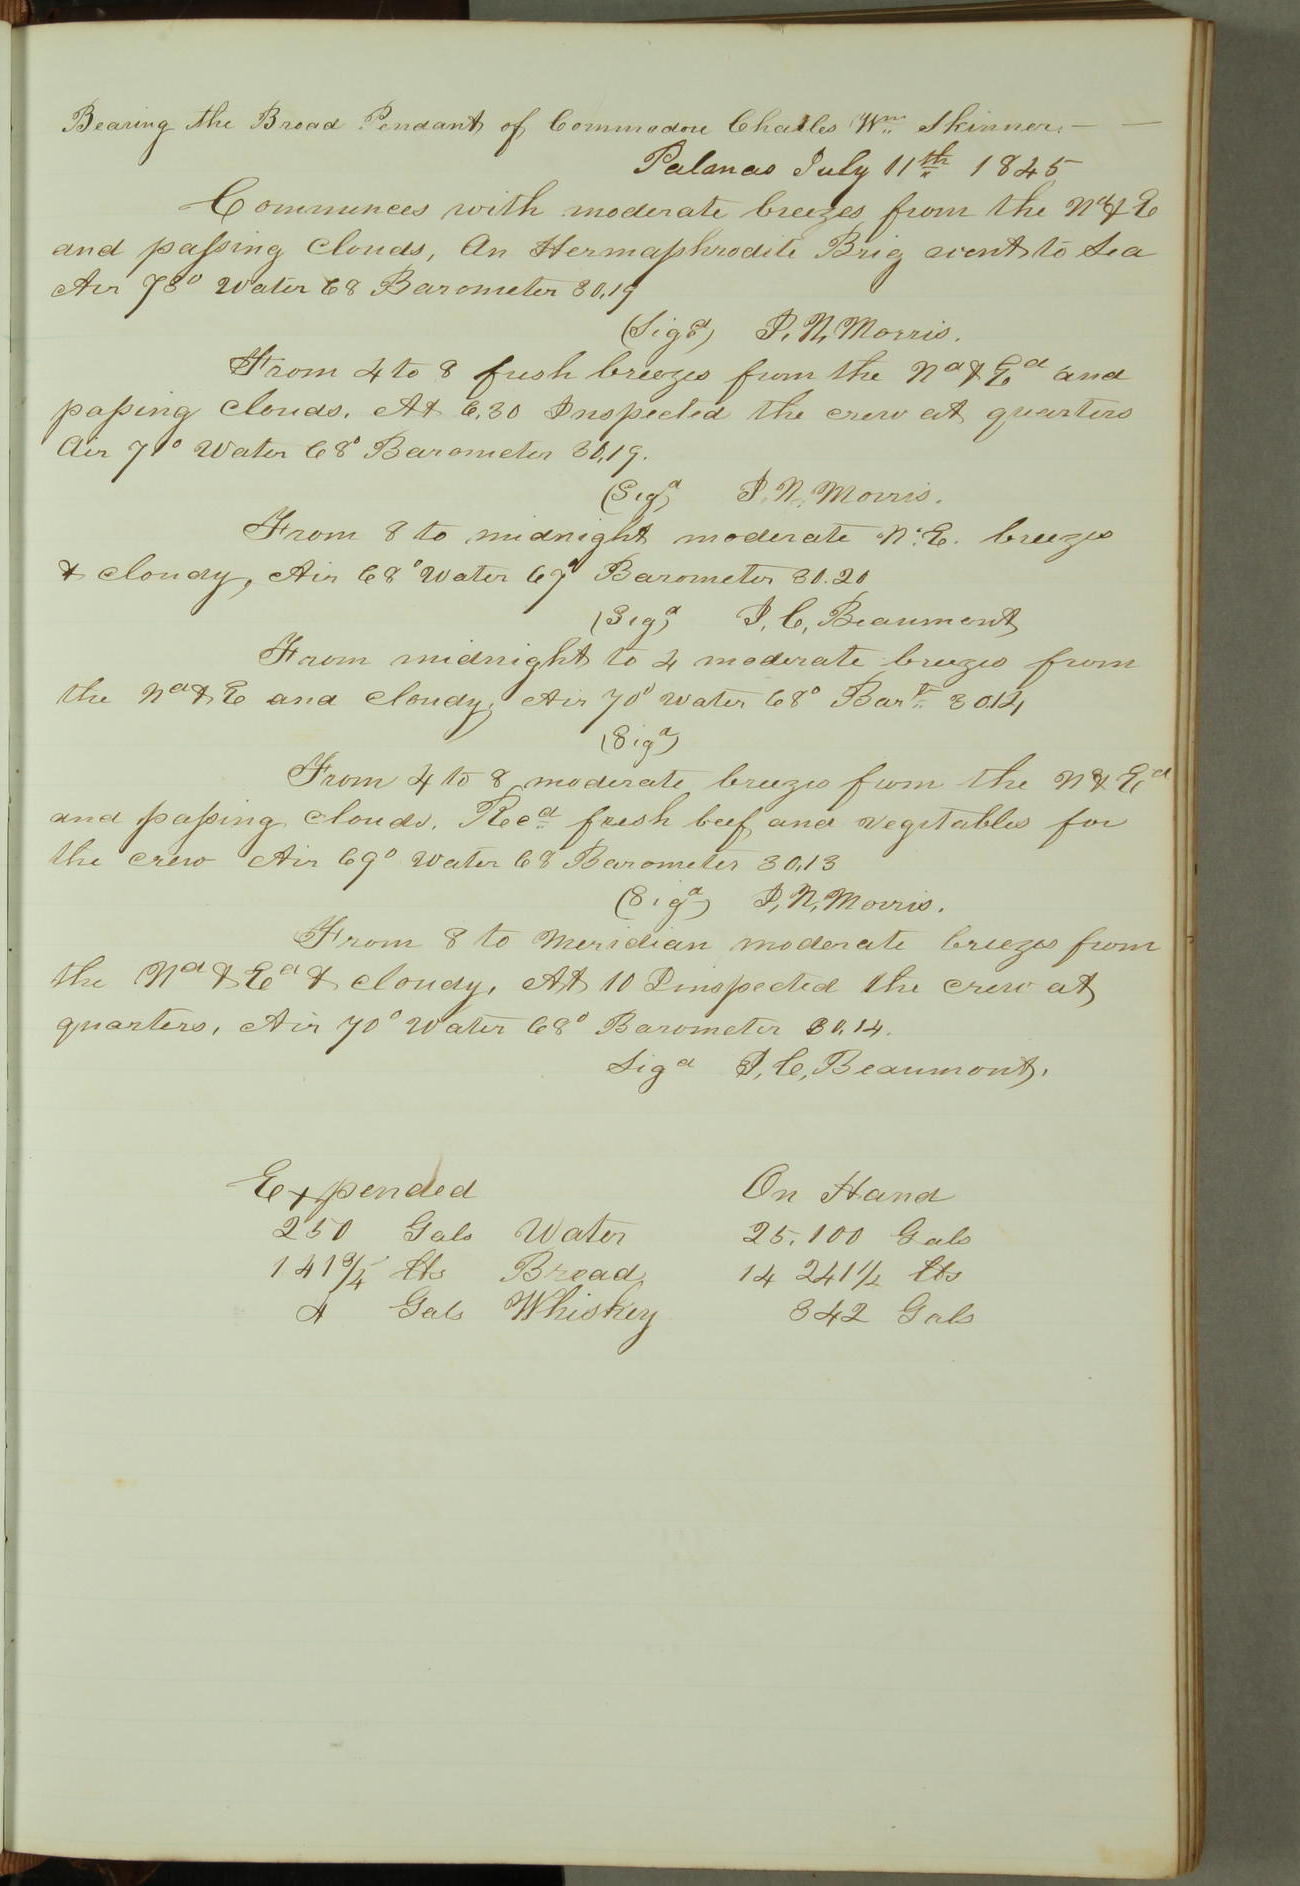 Bearing the Broad Pendant of Commodore Charles Wm. Skinner. — —
Palmas July 11th 1845
Commences with moderate breezes from the Nd & E
and passing Clouds, An Hermaphrodite Brig went to Sea
Air 73° Water 68 Barometer 30,19
(Sigd) I. N. Morris.
From 4 to 8 fresh breezes from the Nd & Ed and
passing Clouds. At 6,30 Inspected the crew at quarters
Air 71° Water 68° Barometer 30,19.
(Sigd) I. N. Morris.
From 8 to midnight moderate N.E. breezes
& cloudy, Air 68° Water 67° Barometer 30.20
(Sigd) I. C. Beaumont
From midnight to 4 moderate breezes from
the Nd & E and cloudy, Air 70° Water 68° Barr 30.14
(Sigd)
From 4 to 8 moderate breezes from the Nd & Ed
and passing clouds. Recd fresh beef and vegetables for
the crew Air 69° Water 68 Barometer 30,13
(Sigd) I. N. Morris.
From 8 to Meridian moderate breezes from
the Nd & Ed & cloudy, At 10 Inspected the crew at
quarters, Air 70° Water 68° Barometer 30.14.
Sigd I. C. Beaumont.
Expended On Hand
250 Gals Water 25.100 Gals
141 3/4 lbs Bread 14 241 1/2 lbs
4 Gals Whiskey 342 Gals